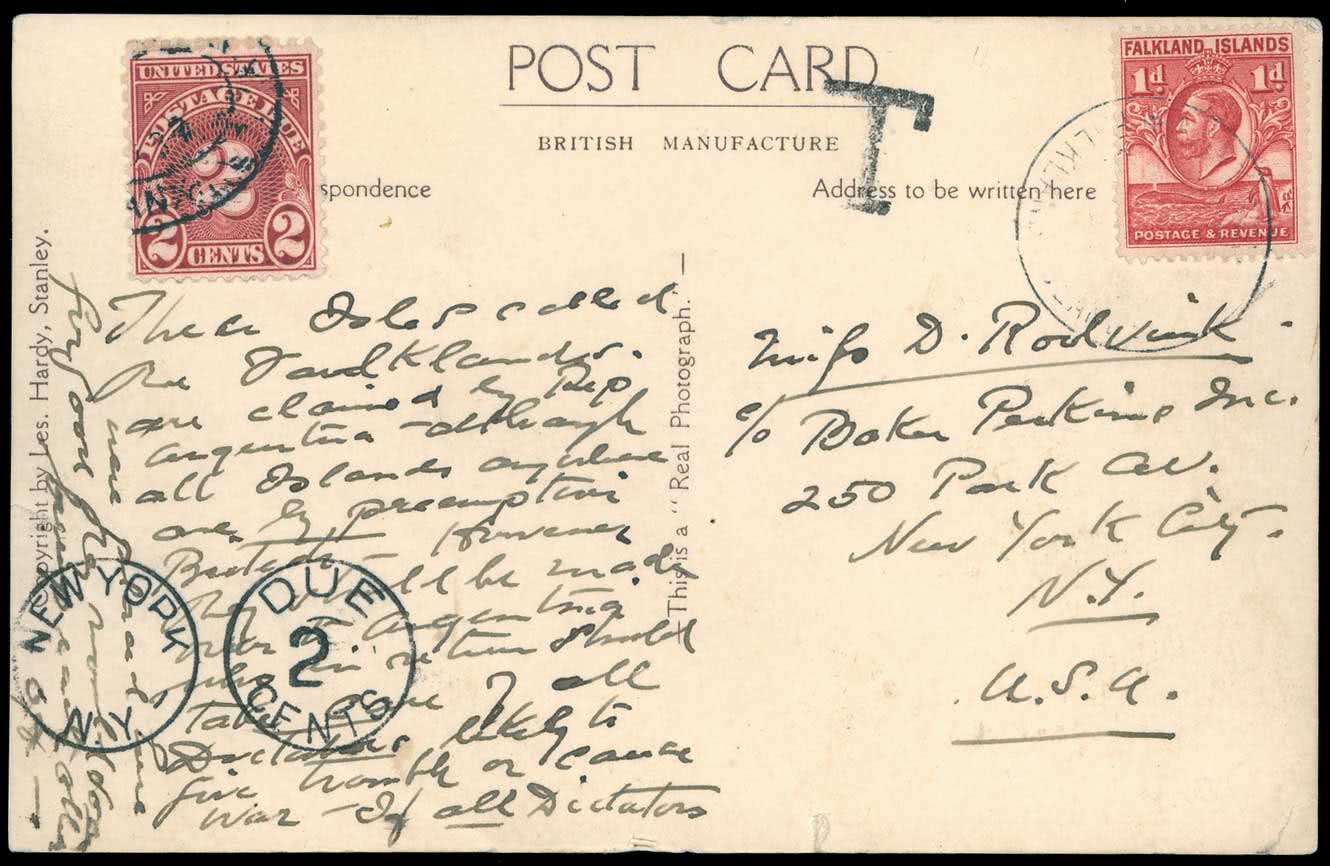 POST CARD
BRITISH MANUFACTURE
spondence
Address to be written here
T
UNITED STATES
POSTAGE DUE
2
2 CENTS 2
FALKLAND ISLANDS
1d 1d
POSTAGE & REVENUE
Copyright by Les. Hardy, Stanley.
This is a "Real Photograph."
These Isles called
the Faulklands.
are claimed by Rep
Argentina - although
all Islands anywhere
are by preemption
British However
will be made
Argentina
who in return should
take care of all
Dictators likely to
give trouble or cause
war - If all Dictators
were
NEW YORK
N.Y.
DUE
2
CENTS
Miss D. Rodvink.
c/o Baker Perkins Inc.
250 Park Av.
New York City.
N.Y.
U.S.A.